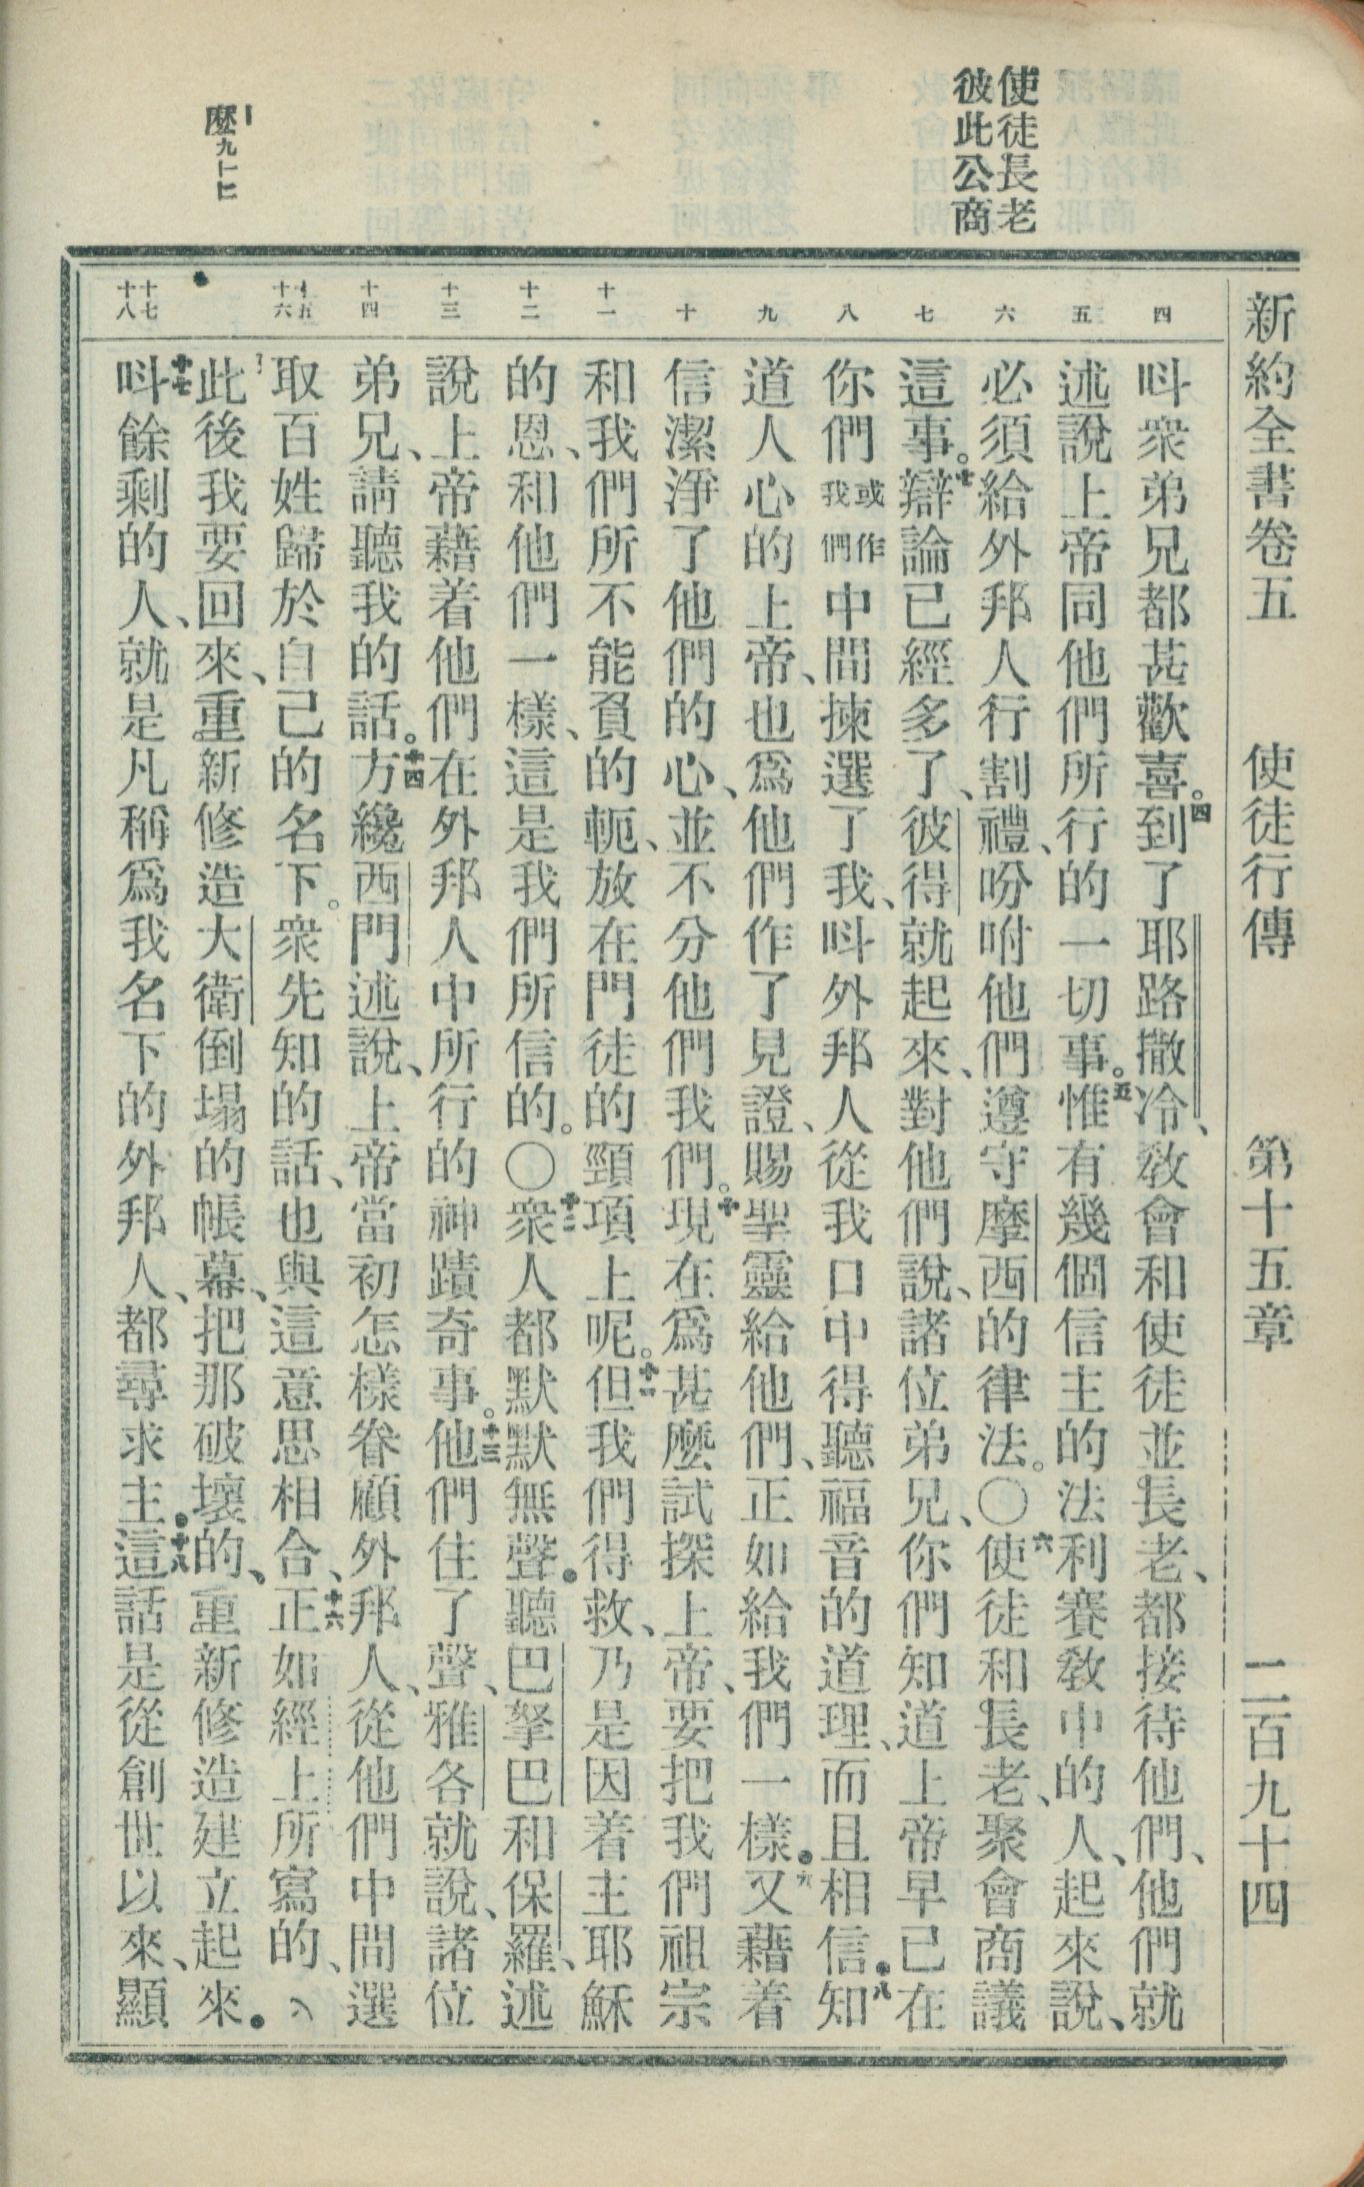 新約全書卷五 使徒行傳 第十五章 二百九十四
使徒長老
彼此公商
摩九十一 十二
四 五 六 七 八 九 十 十一 十二 十三 十四 十五 十六 十七 十八
呌衆弟兄都甚歡喜。四到了耶路撒冷、敎會和使徒並長老、都接待他們、他們就
述說上帝同他們所行的一切事。五惟有幾個信主的法利賽敎中的人、起來說、
必須給外邦人行割禮、吩咐他們遵守摩西的律法。〇六使徒和長老、聚會商議
這事。七辯論已經多了、彼得就起來、對他們說、諸位弟兄、你們知道上帝早已在
你們或作我們中間揀選了我、呌外邦人從我口中得聽福音的道理、而且相信。八知
道人心的上帝、也爲他們作了見證、賜聖靈給他們、正如給我們一樣。九又藉着
信潔淨了他們的心、並不分他們我們。十現在爲甚麽試探上帝、要把我們祖宗
和我們所不能負的軛、放在門徒的頸項上呢。十一但我們得救、乃是因着主耶穌
的恩、和他們一樣、這是我們所信的。〇十二衆人都默默無聲。聽巴拏巴和保羅、述
說上帝藉着他們在外邦人中所行的神蹟奇事。十三他們住了聲、雅各就說、諸位
弟兄、請聽我的話。十四方纔西門述說、上帝當初怎樣眷顧外邦人、從他們中間選
取百姓歸於自己的名下。衆先知的話、也與這意思相合、十六正如經上所寫的、
此後我要回來、重新修造大衛倒塌的帳幕、把那破壞的、重新修造建立起來。
十七呌餘剩的人、就是凡稱爲我名下的外邦人、都尋求主。十八這話是從創世以來、顯